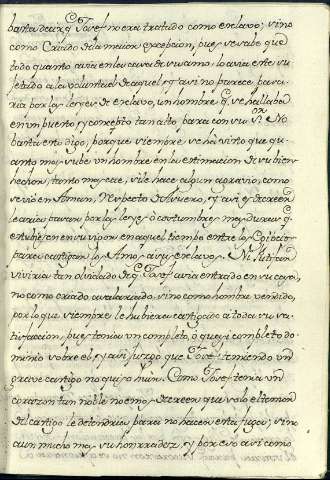 basta decir q.e Josef no era tratado como esclavo; sino
como Criado de la maior excepcion, pues se sabe que
todo quanto avia en la casa de su amo, lo avia este su
jetado a la voluntad de aquel, y asi no parece pasa
ria por las leyes de esclavo, un hombre q.e se hallaba
en un puesto y concepto tan alto para con su S.or No
basta esto digo, porque siempre se ha visto que qu
anto mas sube un hombre en la estimacion de su bien
hechor, tanto mas cae, si le hace algun agravio, como
se vio en Aman, respecto de Asuero, y asi es de creer
le arian pasar por las leyes ò costumbres mas duras q.e
estubiesen en su vigor en aquel tiempo entre los Egipcios
para castigar los Amos a sus esclavos. Ni Putifar
viviria tan olvidado de q.e Josef avia entrado en su casa,
no como criado asalariado, sino como hombre vendido,
por lo que siempre le hubiera castigado a toda su sa-
tisfaccion, pues tenia un completo ò quasi completo do-
minio sobre el, y asi juzgo que Josè temiendo un
grave castigo no quiso huir. Como Josef tenia un
corazon tan noble no emos de creer que solo el temor
del castigo le detendria para no hacer esta fuga; sino
aun mucho mas su honrradez, y por eso asi como